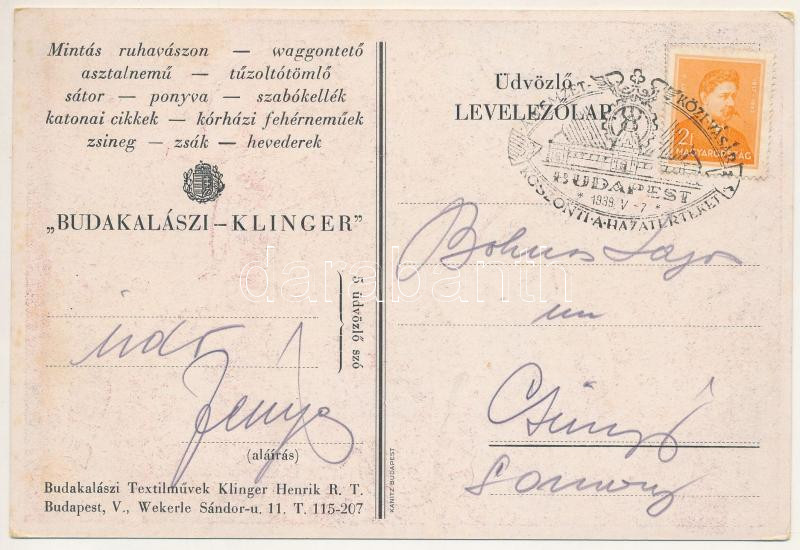 Mintás ruhavászon — waggontető
asztalnemű — tűzoltótömlő
sátor — ponyva — szabókellék
katonai cikkek — kórházi fehérneműek
zsineg — zsák — hevederek
„BUDAKALÁSZI – KLINGER”
5 üdvözlő szó
üdv
(aláírás)
Budakalászi Textilművek Klinger Henrik R. T.
Budapest, V., Wekerle Sándor-u. 11. T. 115-207
KANITZ BUDAPEST
Üdvözlő
LEVELEZŐLAP
BUDAPEST
* 1939. V -7 *
KÖSZÖNTI·A·HAZATÉRTEKET
2f
MAGYARORSZÁG
Bohus Lajos
darabanth